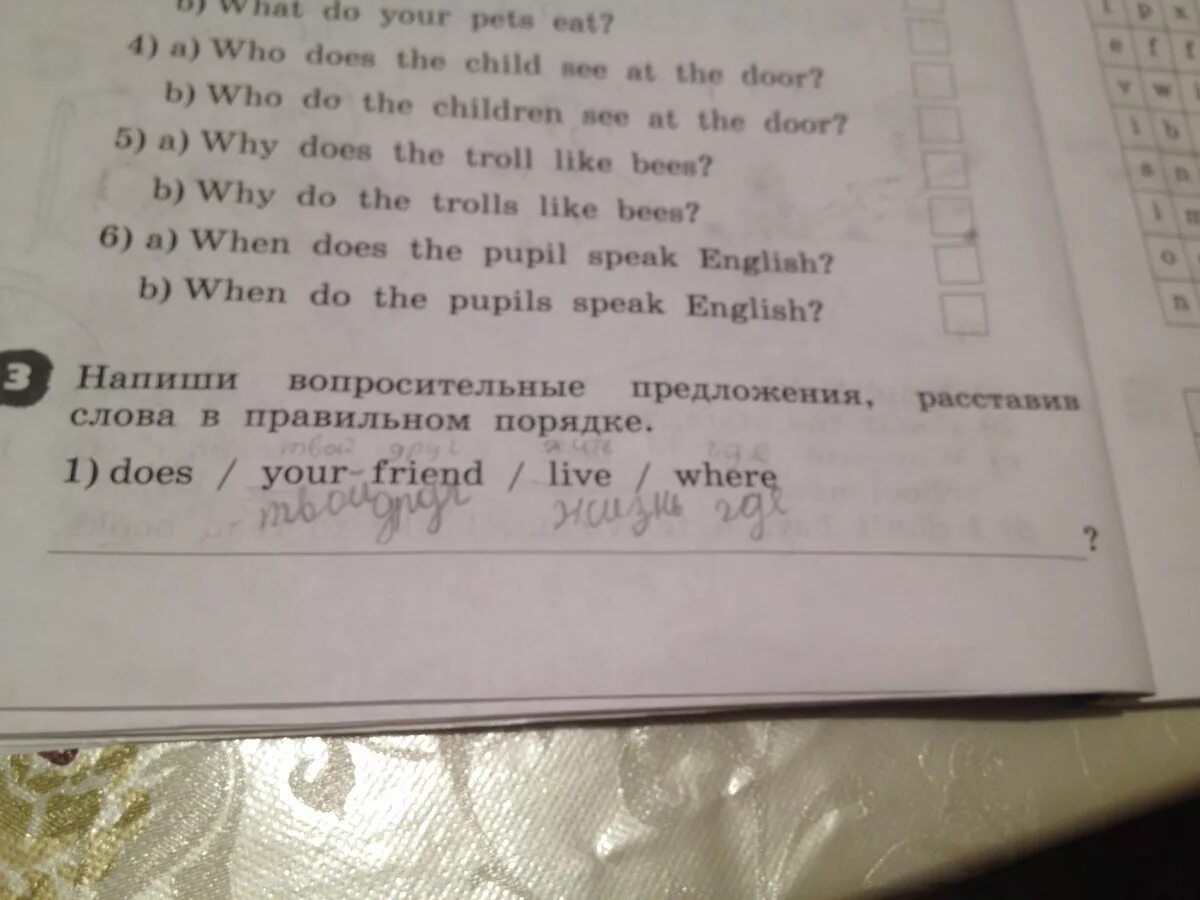 b) What do your pets eat?
4) a) Who does the child see at the door?
b) Who do the children see at the door?
5) a) Why does the troll like bees?
b) Why do the trolls like bees?
6) a) When does the pupil speak English?
b) When do the pupils speak English?
3 Напиши вопросительные предложения, расставив
слова в правильном порядке.
твой друг где
1) does / your friend / live / where
твой друг жизнь где
?
p x
e f f
v w
i b
a n
i m
o
n